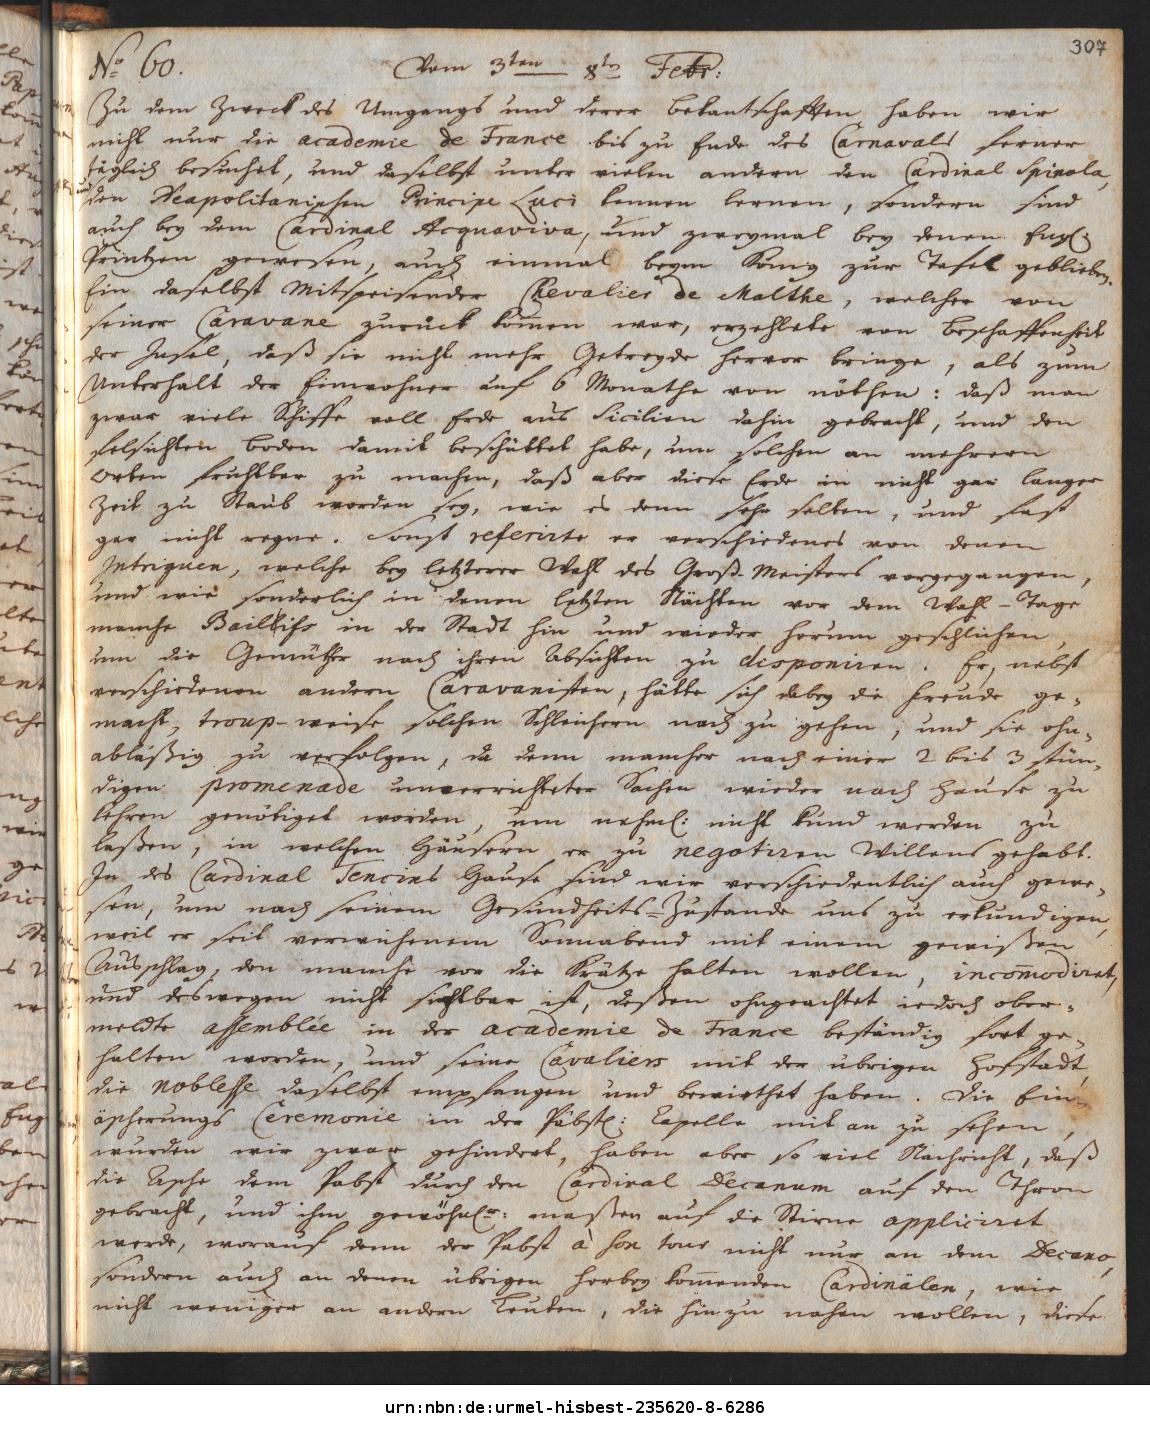 307
No 60. Vom 3ten 8ten Febr:
Zu dem Zweck des Umgangs und derer bekantschafften haben wir
nicht nur die academie de France bis zu Ende des Carnavals ferner
täglich besuchet, und daselbst unter vielen andern den Cardinal Spinola,
und den Neapolitanischen Principe Luci kennen lernen, sondern sind
auch bey dem Cardinal Acquaviva, und zweymal bey denen Engl:
Printzen gewesen, auch einmal beym König zur Tafel geblieben.
Ein daselbst Mitspeisender Chevalier de Malthe, welcher von
seiner Caravane zurück kommen war, erzehlete von beschaffenheit
der Insel, daß sie nicht mehr Getreyde hervor bringe, als zum
Unterhalt der Einwohner auf 6 Monathe von nöthen: daß man
zwar viele Schiffe voll Erde aus Sicilien dahin gebracht, und den
felsichten boden damit beschüttet habe, um solchen an mehrern
Orten fruchtbar zu machen, daß aber diese Erde in nicht gar langer
Zeit zu Staub worden sey, wie es denn sehr selten, und fast
gar nicht regne. Sonst referirte er verschiedenes von denen
Intriguen, welche bey letzterer Wahl des Groß-Meisters vorgegangen,
und wie sonderlich in denen letzten Nächten vor dem Wahl-Tage
manche Baillifs in der Stadt hin und wieder herum geschlichen,
um die Gemüther nach ihren Absichten zu disponiren. Er, nebst
verschiedenen andern Caravanisten, hätte sich dabey die Freude ge-
macht, troup-weise solchen Schleichern nach zu gehen, und sie ohn-
abläßig zu verfolgen, da denn mancher nach einer 2 bis 3 stün-
digen promenade unverrichteter Sachen wieder nach Hause zu
kehren genötiget worden, um nehml: nicht kund werden zu
laßen, in welchen Häusern er zu negotiren Willens gehabt.
In des Cardinal Tencins Hause sind wir verschiedentlich auch gewe-
sen, um nach seinem Gesundheits-Zustande uns zu erkundigen,
weil er seit verwichenem Sonnabend mit einem gewißen
Ausschlag, den manche vor die Krätze halten wollen, incommodiret,
und deswegen nicht sichtbar ist, deßen ohngeachtet iedoch ober-
meldte assemblée in der academie de France beständig fort ge-
halten worden, und seine Cavaliers mit der übrigen Hofstadt,
die noblesse daselbst empfangen und bewirthet haben. Die Ein-
äscherungs Ceremonie in der Päbstl: Capelle mit an zu sehen,
wurden wir zwar gehindert, haben aber so viel Nachricht, daß
die Asche dem Pabst durch den Cardinal Decanum auf den Thron
gebracht, und ihm gewöhnl: maßen auf die Stirne appliciret
werde, worauf denn der Pabst à son tour nicht nur an dem Decano,
sondern auch an denen übrigen herbey kommenden Cardinälen, wie
nicht weniger an andern Leuten, die hinzu nahen wollen, diese
urn:nbn:de:urmel-hisbest-235620-8-6286